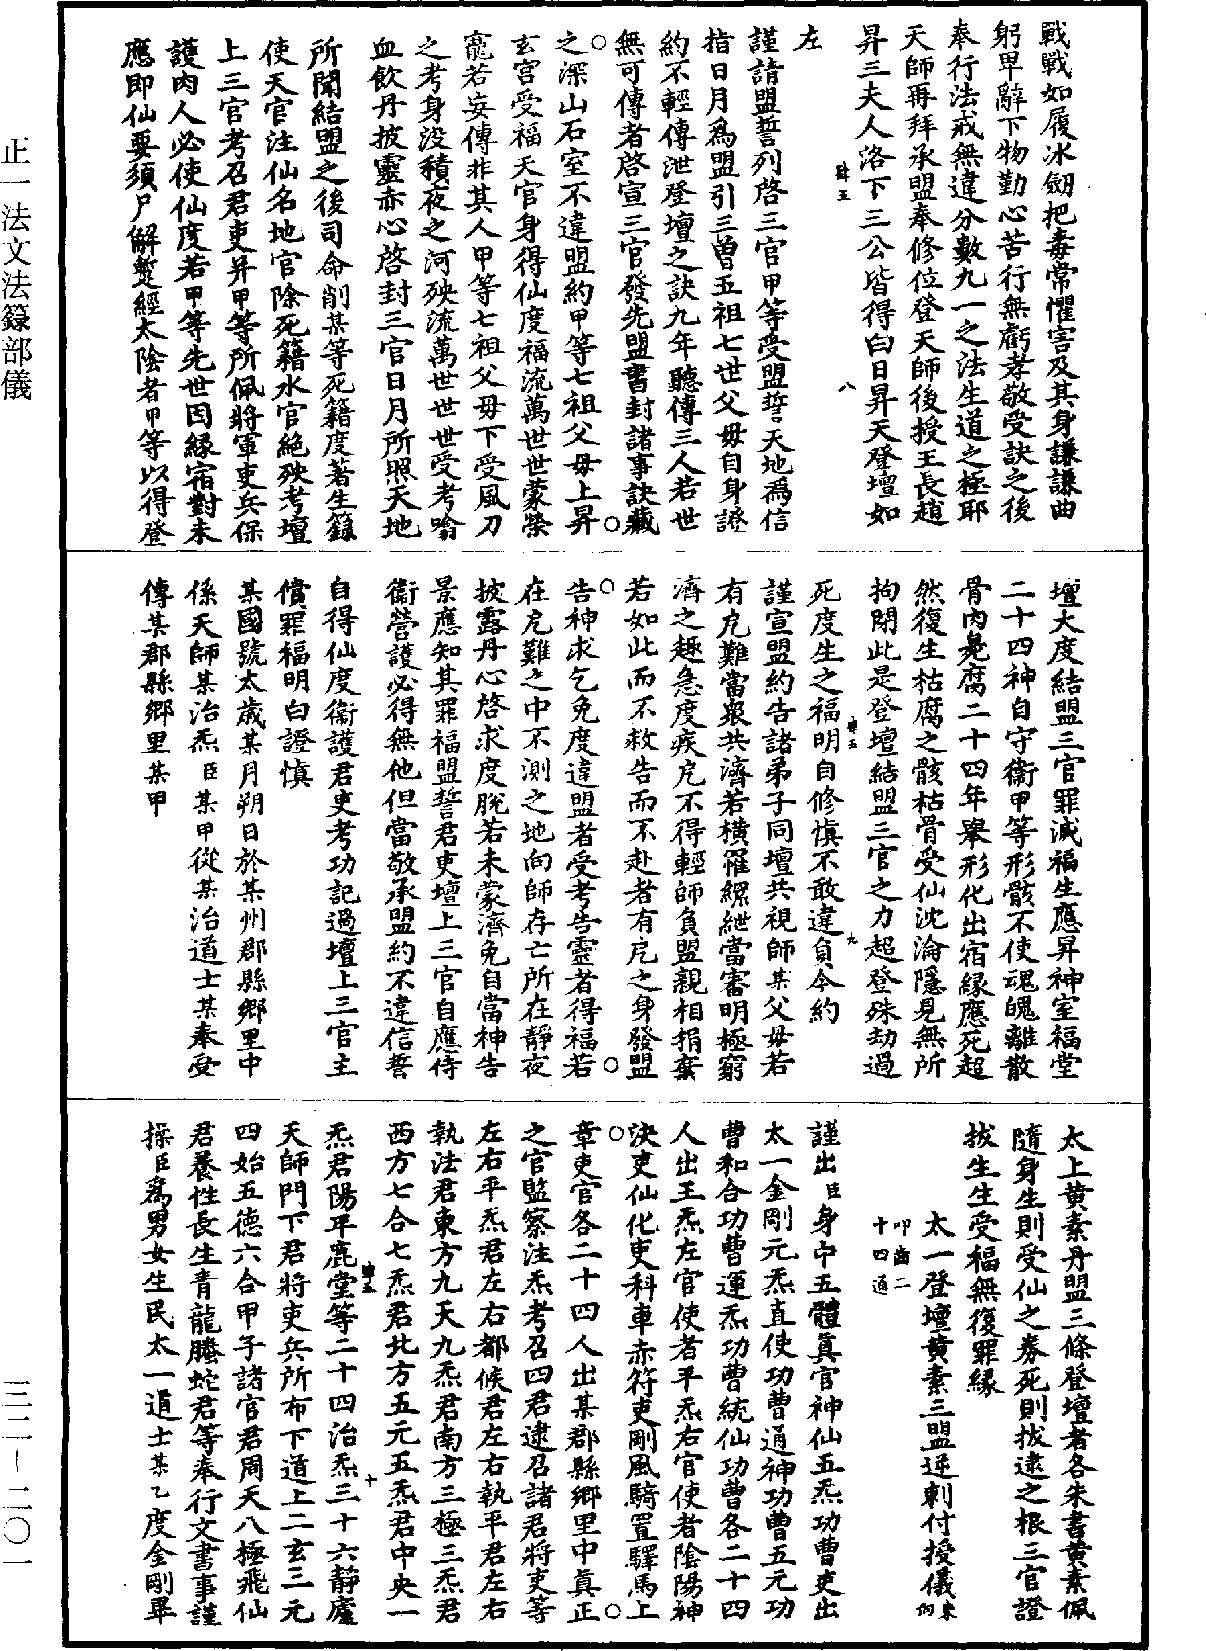 戰戰如履冰劒把毒常懼害及其身謙謙曲
躬卑辭下物勤心苦行無虧孝敬受訣之後
奉行法戒無違分數九一之法生道之極耶
天師再拜承盟奉修位登天師後授王長趙
昇三夫人洛下三公皆得白日昇天登壇如
左
謹請盟誓列啓三官甲等受盟誓天地爲信
指日月爲盟引三曾五祖七世父母自身證
約不輕傳泄登壇之訣九年聽傳三人若世
無可傳者啓宣三官發先盟書封諸事訣藏
之深山石室不違盟約甲等七祖父母上昇
玄宮受福天官身得仙度福流萬世世蒙榮
寵若妄傳非其人甲等七祖父母下受風刀
之考身没積夜之河殃流萬世世世受考喻
血飲丹披靈赤心啓封三官日月所照天地
所聞結盟之後司命削某等死籍度著生籙
使天官注仙名地官除死籍水官絕殃考壇
上三官考召君吏幷甲等所佩將軍吏兵保
護肉人必使仙度若甲等先世因緣宿對未
應即仙要須尸解蹔經太陰者甲等以得登
壇大度結盟三官罪滅福生應昇神室福堂
二十四神自守衞甲等形骸不使魂魄離散
骨肉臭腐二十四年舉形化出宿緣應死超
然復生枯腐之骸枯骨受仙沈淪隱見無所
拘閉此是登壇結盟三官之力超登殊劫過
死度生之福明自修愼不敢違負今約
謹宣盟約告諸弟子同壇共視師某父母若
有厄難當衆共濟若橫罹縲紲當審明極窮
濟之趣急度疾厄不得輕師負盟親相捐棄
若如此而不救告而不赴者有厄之身發盟
告神求乞免度違盟者受考告靈者得福若
在厄難之中不測之地向師存亡所在靜夜
披露丹心啓求度脫若未蒙濟免自當神告
景應知其罪福盟誓君吏壇上三官自應侍
衞營護必得無他但當敬承盟約不違信誓
自得仙度衞護君吏考功記過壇上三官主
儅罪福明白證愼
某國號太歲某月朔日於某州郡縣鄉里中
係天師某治炁臣某甲從某治道士某奉受
傳某郡縣鄉里某甲
太上黃素丹盟三條登壇者各朱書黃素佩
隨身生則受仙之券死則拔逮之根三官證
拔生生受福無復罪緣
太一登壇黃素三盟逆刺付授儀東向
叩齒二十四通
謹出臣身中五體眞官神仙五炁功曹吏出
太一金剛元炁直使功曹通神功曹五元功
曹和合功曹運炁功曹統仙功曹各二十四
人出王炁左官使者平炁右官使者陰陽神
決吏仙化吏科車赤符吏剛風騎置驛馬上
章吏官各二十四人出某郡縣鄉里中眞正
之官監察注炁考召四君逮召諸君將吏等
左右平炁君左右都候君左右執平君左右
執法君東方九天九炁君南方三極三炁君
西方七合七炁君北方五元五炁君中央一
炁君陽平鹿堂等二十四治炁三十六靜廬
天師門下君將吏兵所布下道上二玄三元
四始五德六合甲子諸官君周天八極飛仙
君養性長生青龍騰蛇君等奉行文書事謹
操臣爲男女生民太一道士某乙度金剛畢
正一法文法籙部儀
三二－二〇一